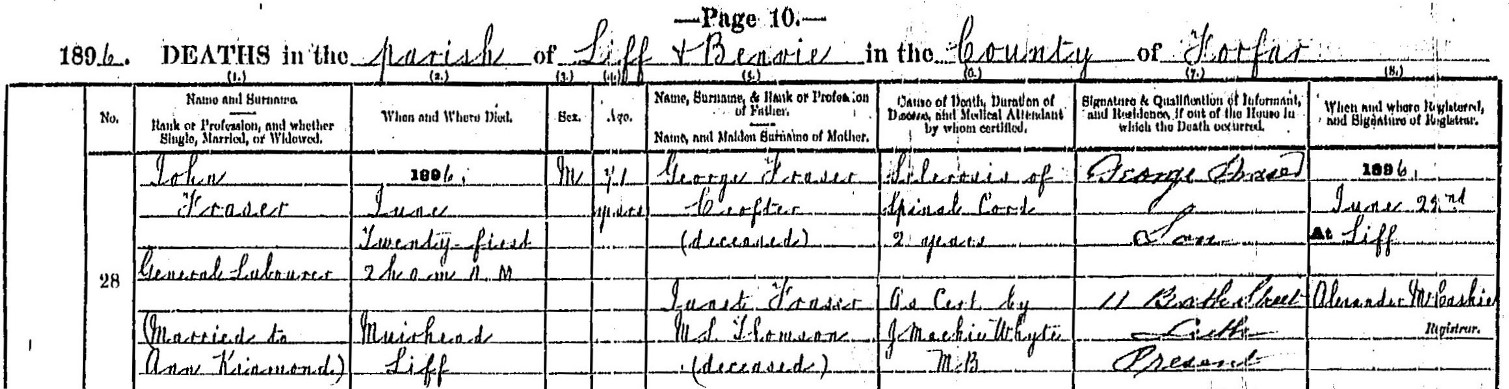 —Page 10.—
1896. DEATHS in the parish of Liff & Benvie in the County of Forfar
(1.) (2.) (3.) (4.) (5.) (6.) (7.) (8.)
No.
Name and Surname.
Rank or Profession, and whether
Single, Married, or Widowed.
When and Where Died.
Sex.
Age.
Name, Surname, & Rank or Profession
of Father.
Name, and Maiden Surname of Mother.
Cause of Death, Duration of
Disease, and Medical Attendant
by whom certified.
Signature & Qualification of Informant,
and Residence, if out of the House in
which the Death occurred.
When and where Registered,
and Signature of Registrar.
28
John
Fraser
General Labourer
Married to
Ann Kinmond)
1896.
June
Twenty-first
2h 0m A M
Muirhead
Liff
M
71
years
George Fraser
Crofter
(deceased)
Janet Fraser
M.S. Thomson
(deceased)
Sclerosis of
Spinal Cord
2 years
As Cert by
J Mackie Whyte
M B
George Fraser
Son
11 Street
Leith
Present
1896,
June 22nd
At Liff
Alexander McCaskie
Registrar.